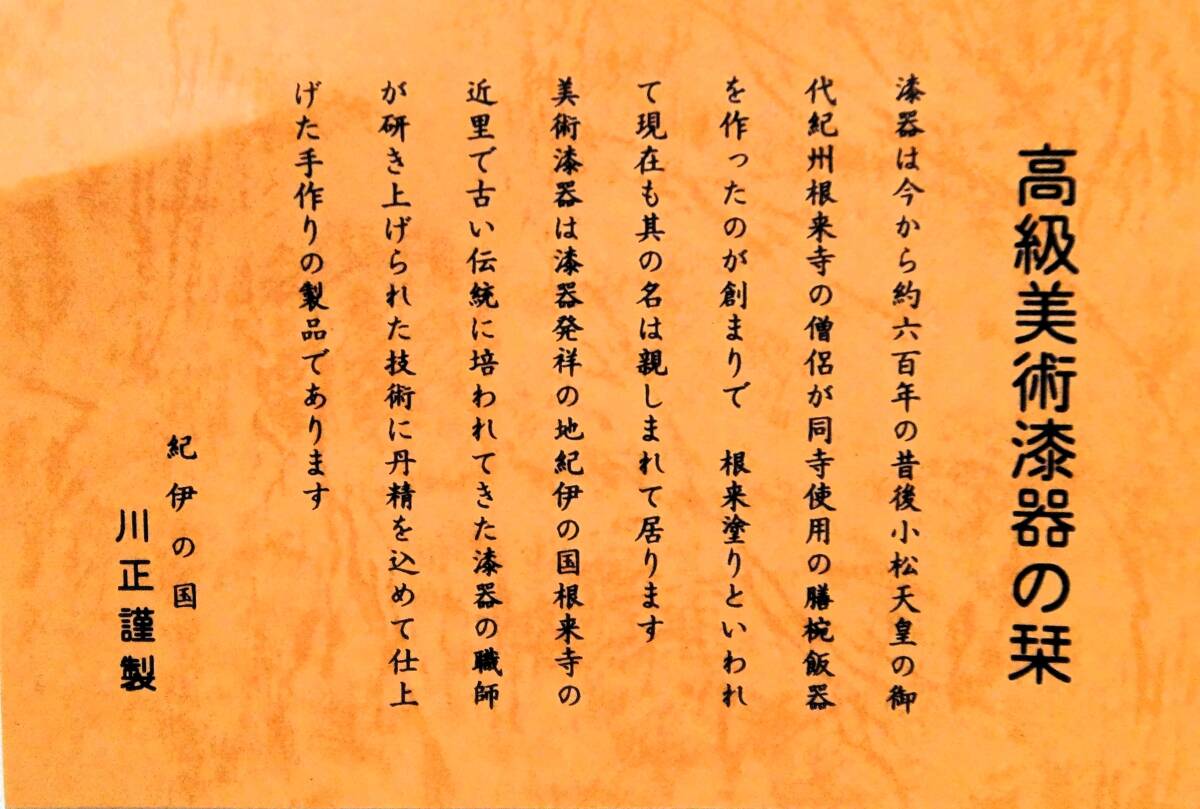 高級美術漆器の栞
漆器は今から約六百年の昔後小松天皇の御
代紀州根来寺の僧侶が同寺使用の膳椀飯器
を作ったのが創まりで　根来塗りといわれ
て現在も其の名は親しまれて居ります
美術漆器は漆器発祥の地紀伊の国根来寺の
近里で古い伝統に培われてきた漆器の職師
が研き上げられた技術に丹精を込めて仕上
げた手作りの製品であります
紀伊の国
川正謹製